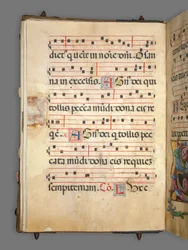 dict' qui ve nit in noie dñi. Osan
na in excelsis. Agn' dei qui
tollis pecca mũdi dona eis re
qē. Agn' dei q tollis pec
cata mũdi dona eis requiē
sempiternam. Cō. Lux e